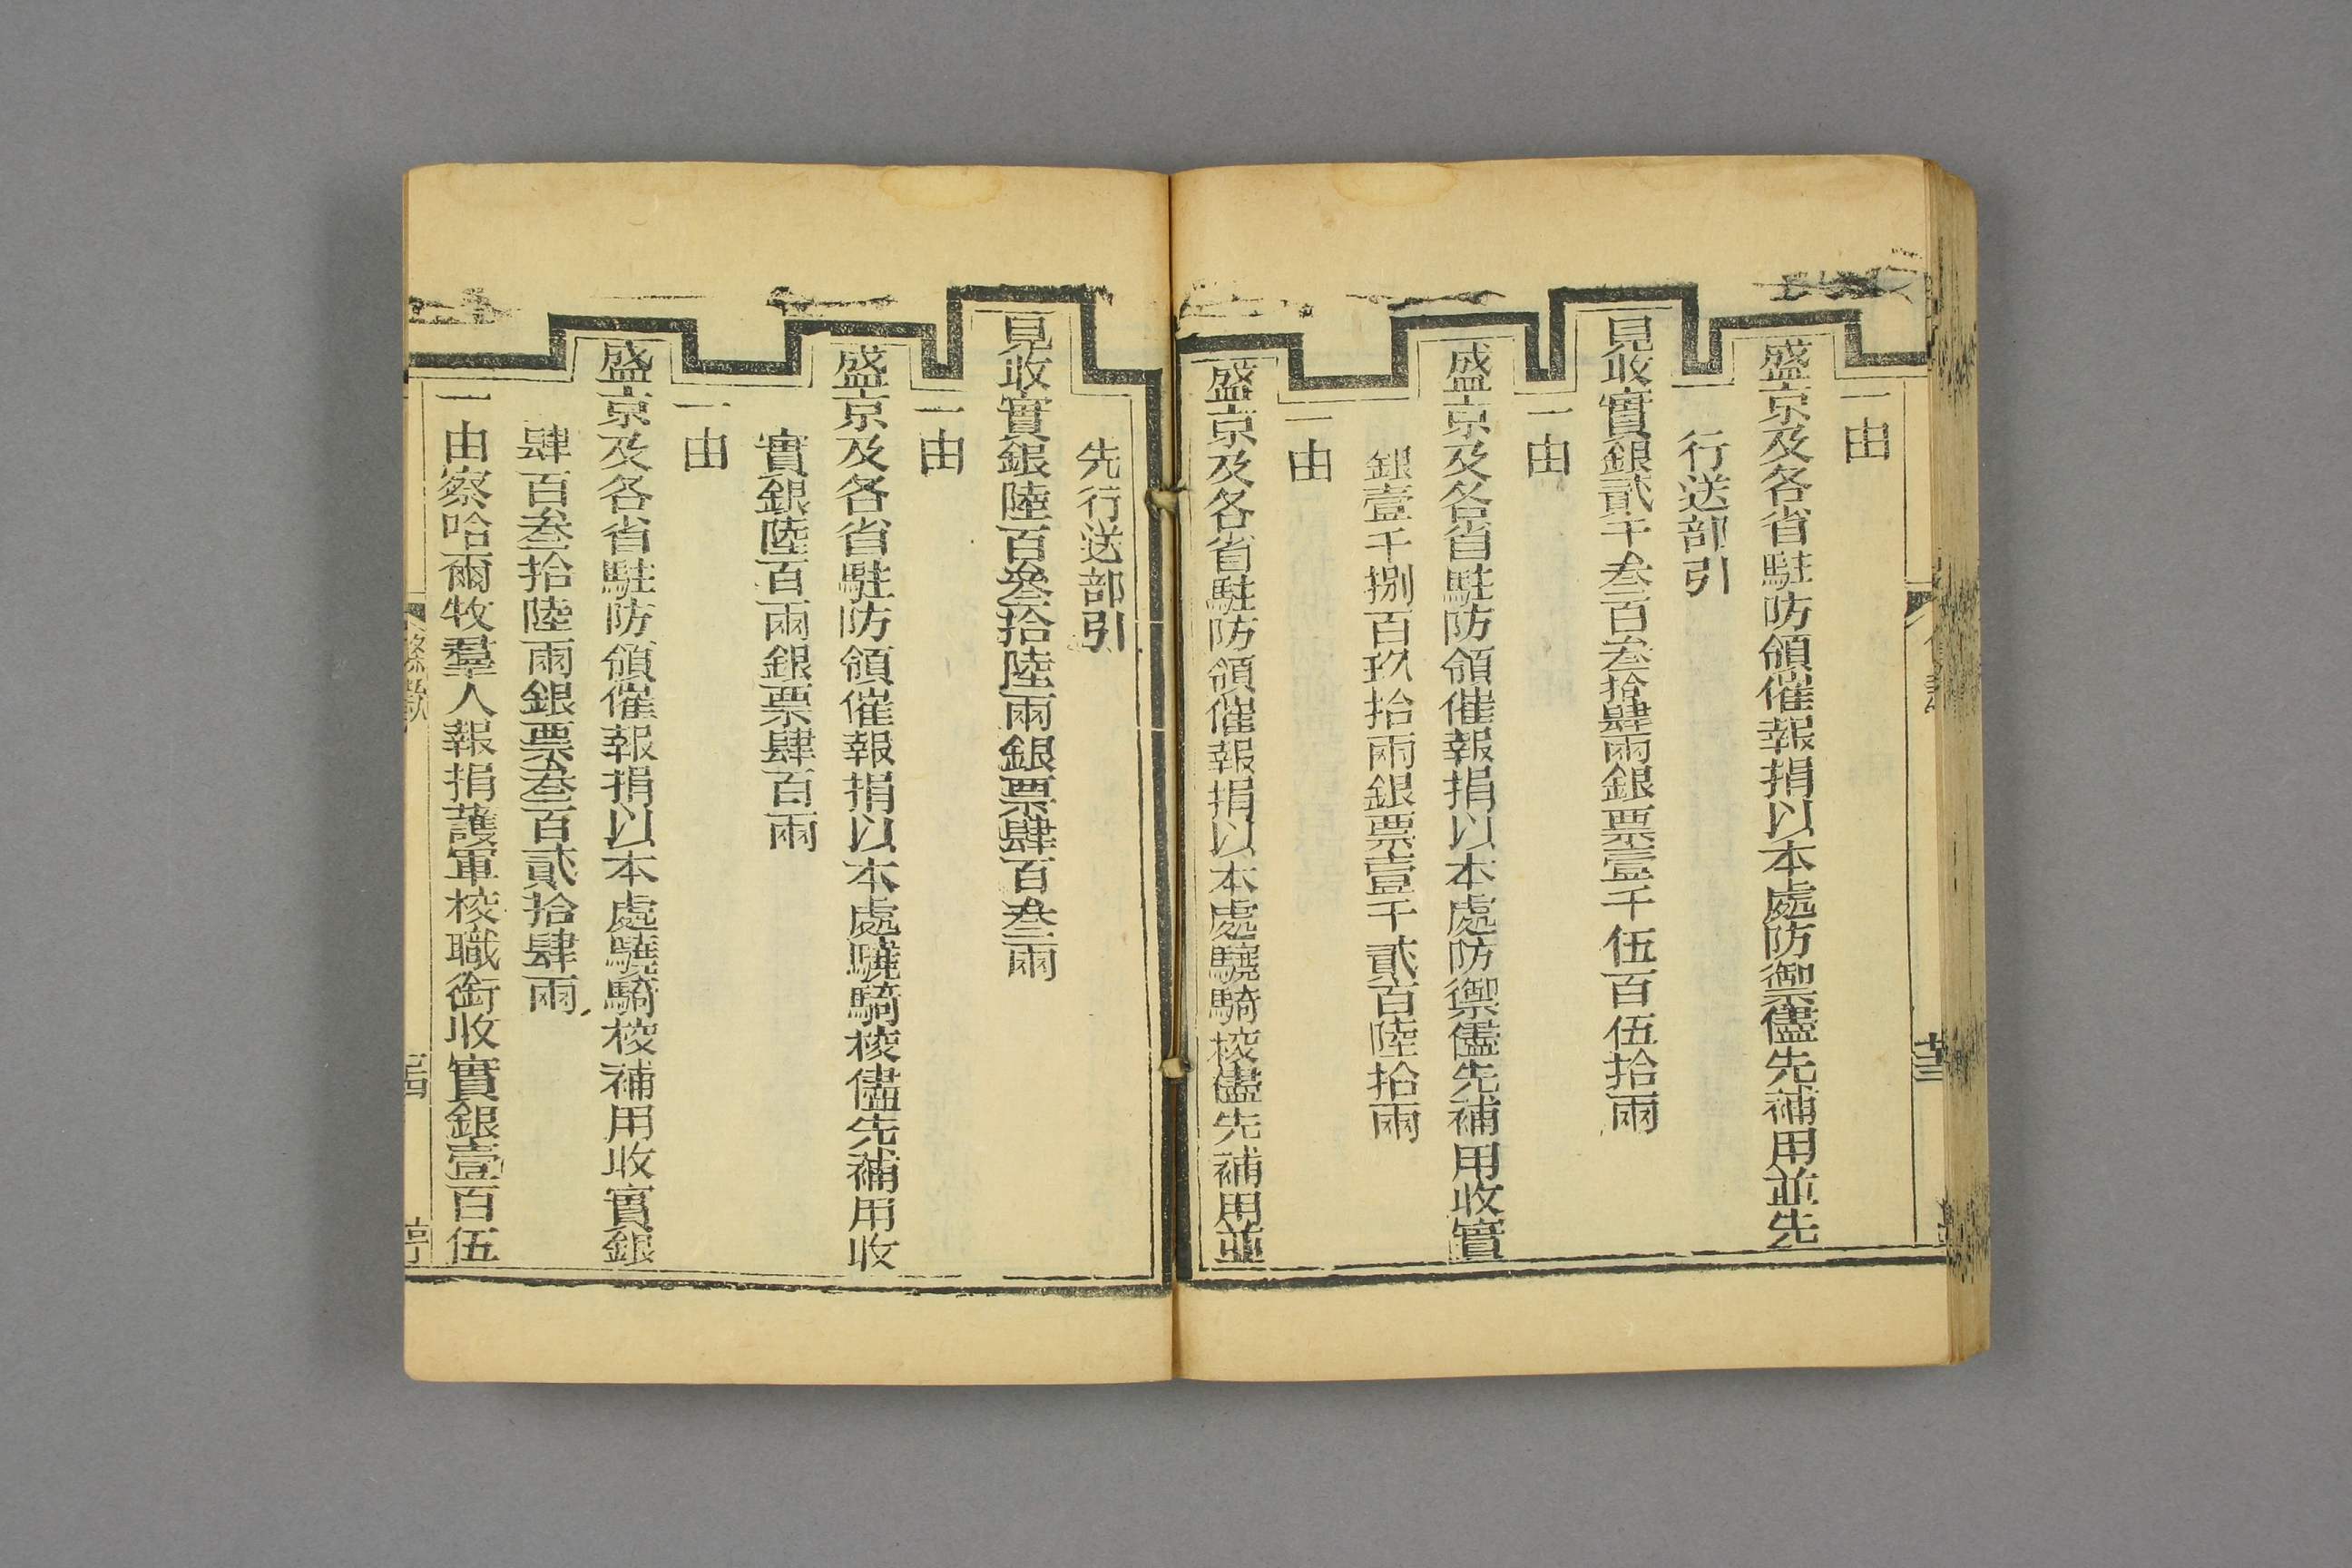 一由
盛京及各省駐防領催報捐以本處防禦儘先補用並先
行送部引
見收實銀貳千叁百叁拾肆兩銀票壹千伍百伍拾兩
一由
盛京及各省駐防領催報捐以本處防禦儘先補用收實
銀壹千捌百玖拾兩銀票壹千貳百陸拾兩
一由
盛京及各省駐防領催報捐以本處驍騎校儘先補用並
先行送部引
見收實銀陸百叁拾陸兩銀票肆百叁兩
一由
盛京及各省駐防領催報捐以本處驍騎校儘先補用收
實銀陸百兩銀票肆百兩
一由
盛京及各省駐防領催報捐以本處驍騎校補用收實銀
肆百叁拾陸兩銀票叁百貳拾肆兩
一由察哈爾牧羣人報捐護軍校職銜收實銀壹百伍
條款